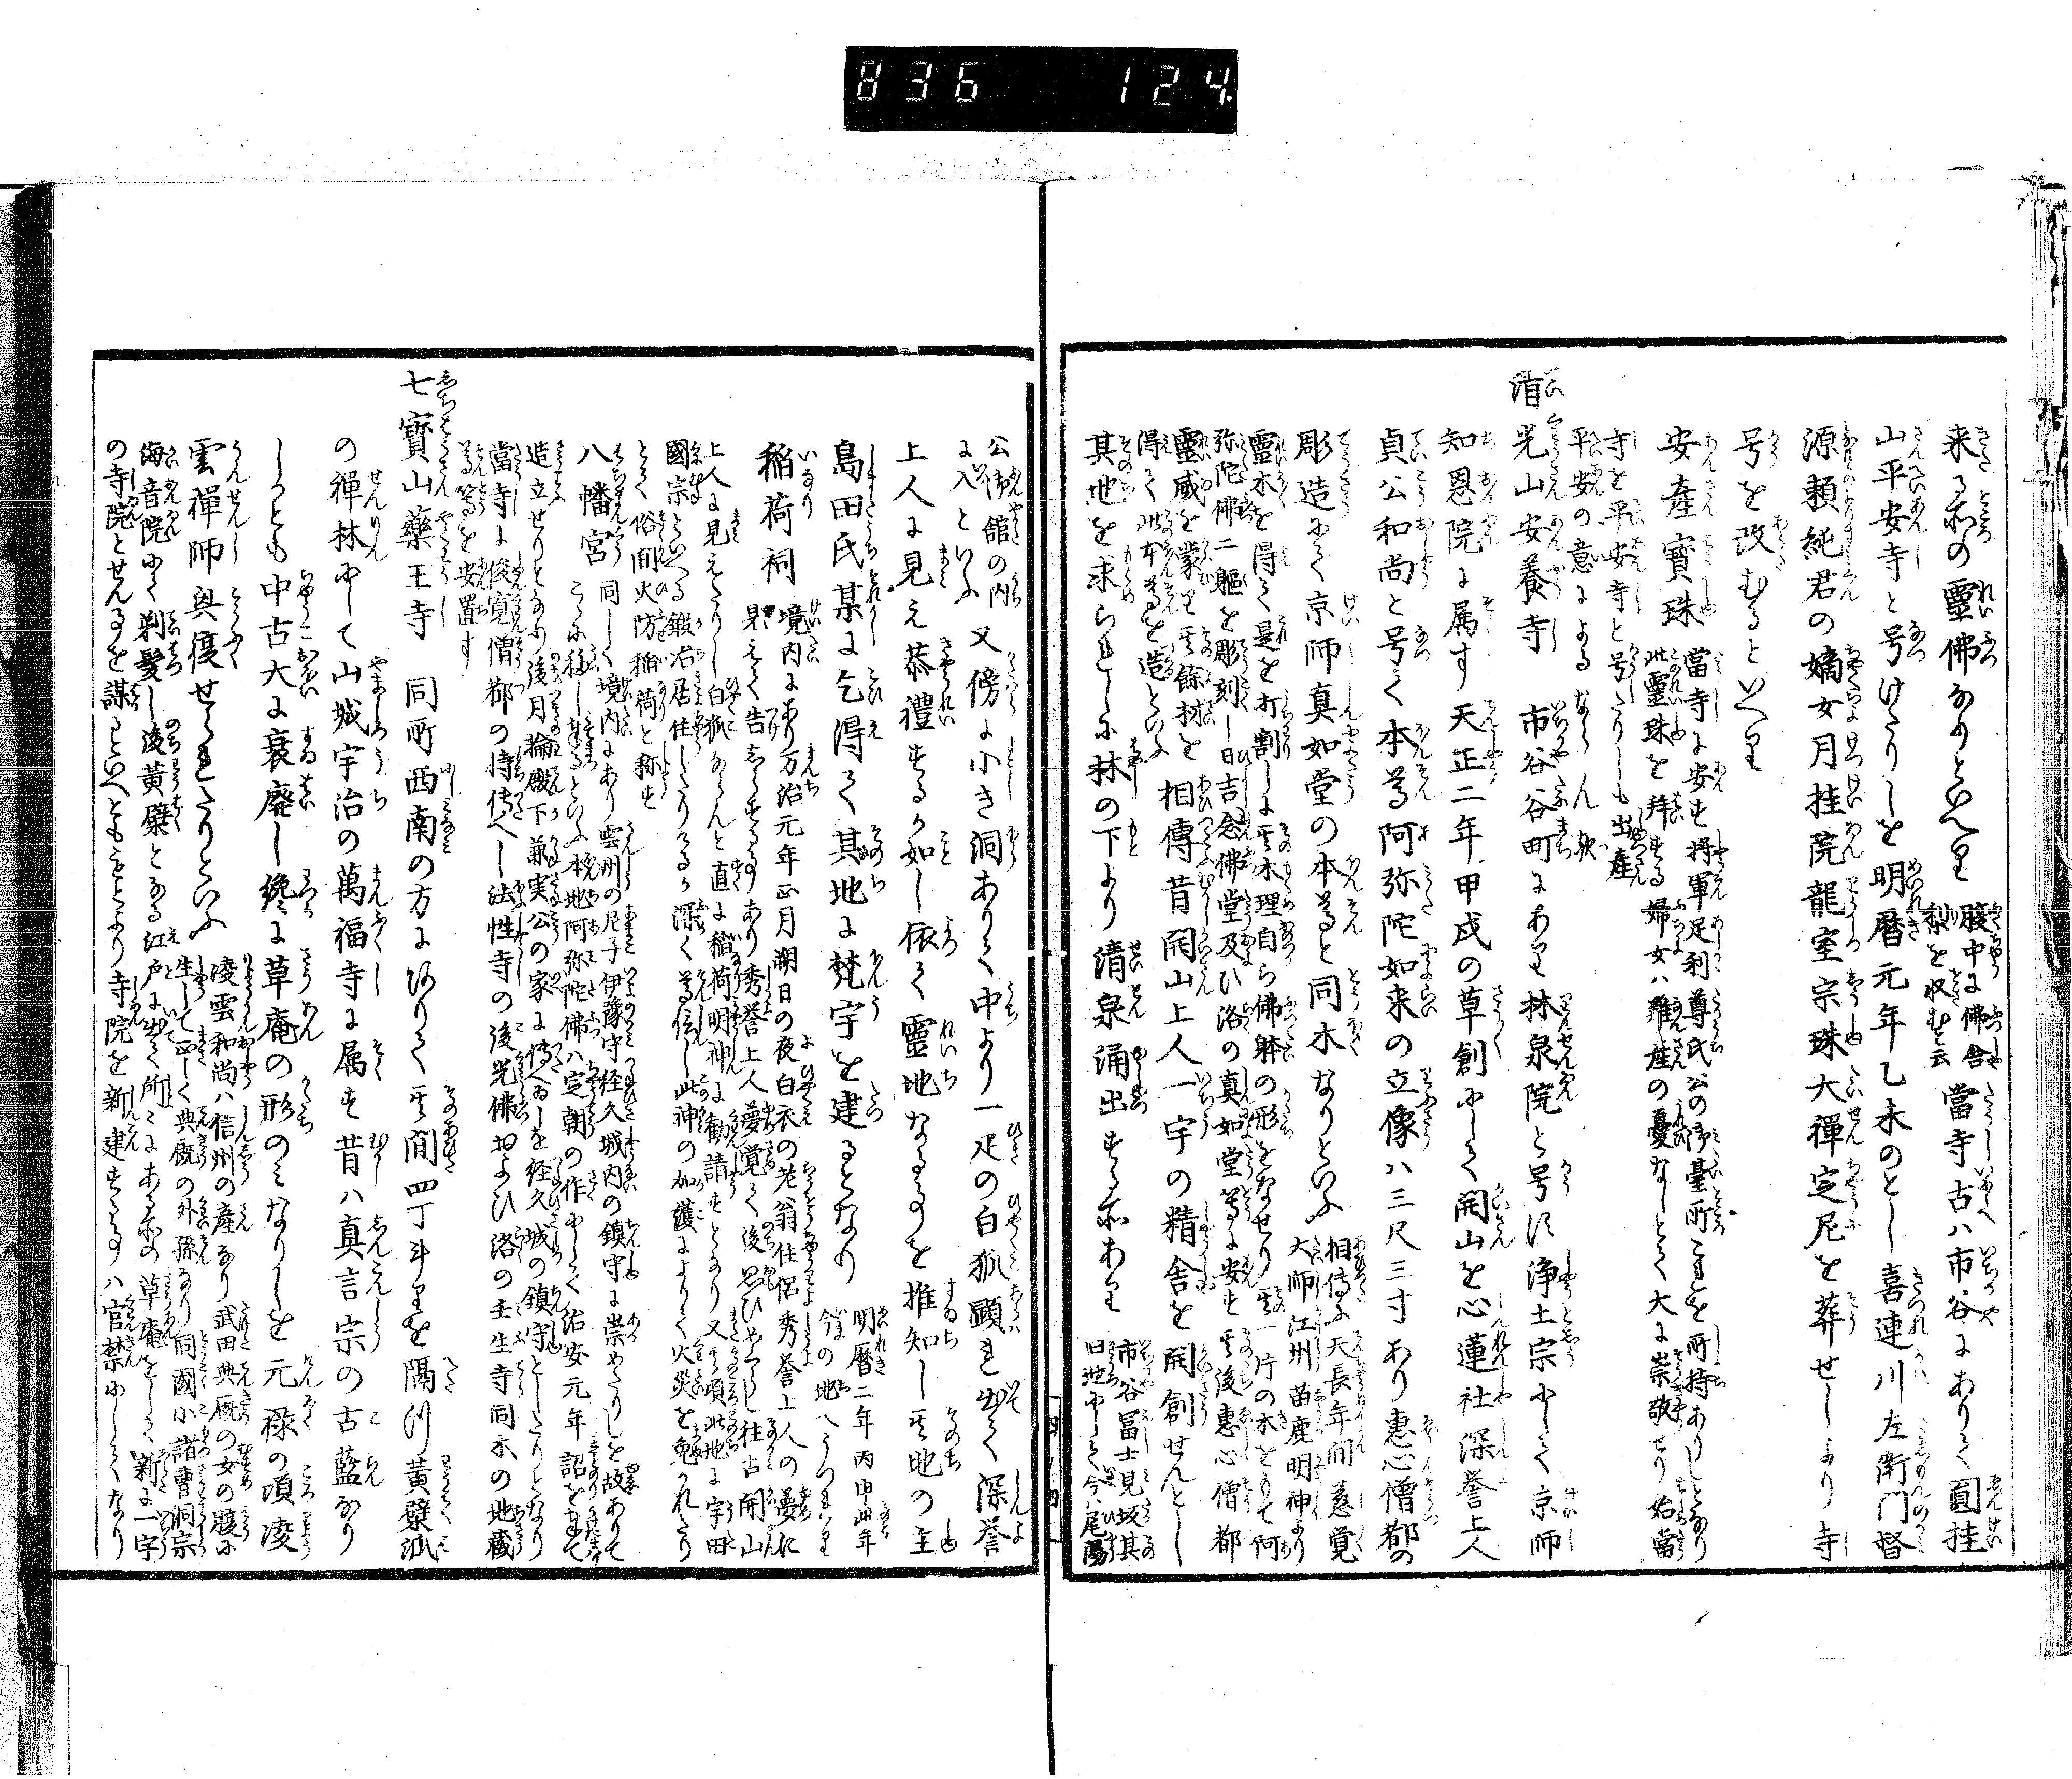 836 124
来る所の靈佛なりといへり
腹中に佛舎
梨を収むと云
當寺古ハ市谷にありて圓桂
山平安寺と号けたりしを明暦元年乙未のとし喜連川左衛門督
源頼純君の嫡女月桂院龍室宗珠大禪定尼を葬せしより寺
号を改むるといへり
安産寳珠
當寺に安す将軍足利尊氏公の御臺所これを所持ありしとなり
此靈珠を拜する婦女ハ難産の憂なしとて大に崇敬せり始當
寺を平安寺と号たりしも出産
平安の意によるならん歟
清光山安養寺 市谷谷町にあり林泉院と号す浄土宗にして京師
知恩院に属す天正二年甲戌の草創にして開山を心蓮社深誉上人
貞公和尚と号く本尊阿弥陀如来の立像ハ三尺三寸あり惠心僧都の
彫造にて京師真如堂の本尊と同木なりといふ
相傳ふ天長年間慈覚
大師江州苗鹿明神より
靈木を得て是を打割しに其木理自ら佛躰の形をなせり其一片の木をもて阿
弥陀佛二軀を彫刻し日吉念佛堂及ひ洛の真如堂等に安す其後惠心僧都
靈威を蒙り其餘材を
得て此本尊を造といふ
相傳昔開山上人一宇の精舎を開創せんとし
其地を求られしに林の下より清泉涌出する所あり
市谷冨士見坂其
旧地にして今ハ尾陽
公御舘の内
に入といふ
又傍に小き洞ありて中より一疋の白狐顕れ出て深誉
上人に見え恭禮するか如し依て靈地なるを推知し其地の主
島田氏某に乞得て其地に梵宇を建るとなり
明暦二年丙申此年
今の地へうつれり
稲荷祠
境内にあり万治元年正月朔日の夜白衣の老翁住侶秀誉上人の夢に
見えて告しらすることあり秀誉上人夢覚て後思ひやらく往古開山
上人に見えたりし白狐ならんと直に稲荷明神に勧請すとなり又其頃此地に宇田
國宗といへる鍛冶居住したりけるか深く尊信し此神の加護によりて火災を免かれたり
とて俗間火防稲荷と称す
八幡宮
同しく境内にあり雲州の尼子伊豫守経久城内の鎮守に崇めたりしを故ありて
こゝに移し奉るといふ本地阿弥陀佛ハ定朝の作にして治安元年詔を奉て
造立せりとなり後月輪殿下兼実公の家に傳へしを経久城の鎮守としたりとなり
當寺に俊寛僧都の持傳へし法性寺の後光佛およひ洛の壬生寺同木の地蔵
尊等を安置す
七寳山藥王寺 同所西南の方にありて其間四丁斗りを隔つ黄檗派
の禪林にして山城宇治の萬福寺に属す昔ハ真言宗の古藍なり
しとも中古大に衰廃し纔に草庵の形のミなりしを元禄の頃凌
雲禪師興復せられたりといふ
凌雲和尚ハ信州の産なり武田典厩の女の腹に
生して正しく典厩の外孫なり同國小諸曹洞宗
海音院にて剃髪し後黄檗となる江戸に出て所々にある所の草庵をして新に一宇
の寺院とせんことを謀るといへとももとより寺院を新建することハ官禁にしてなり